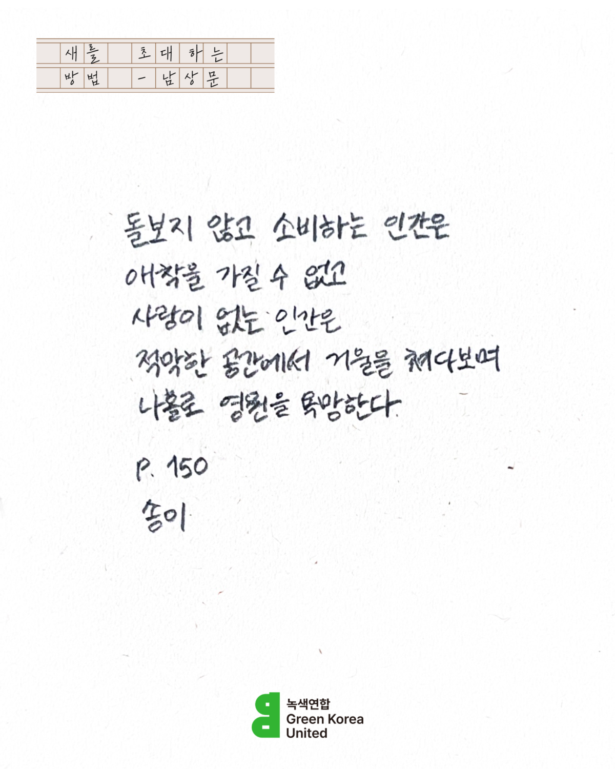 새를 초대하는
방법 - 남상문
돌보지 않고 소비하는 인간은
애착을 가질 수 없고
사랑이 없는 인간은
적막한 공간에서 거울을 쳐다보며
나홀로 영원을 욕망한다.
P. 150
송이
녹색연합
Green Korea
United